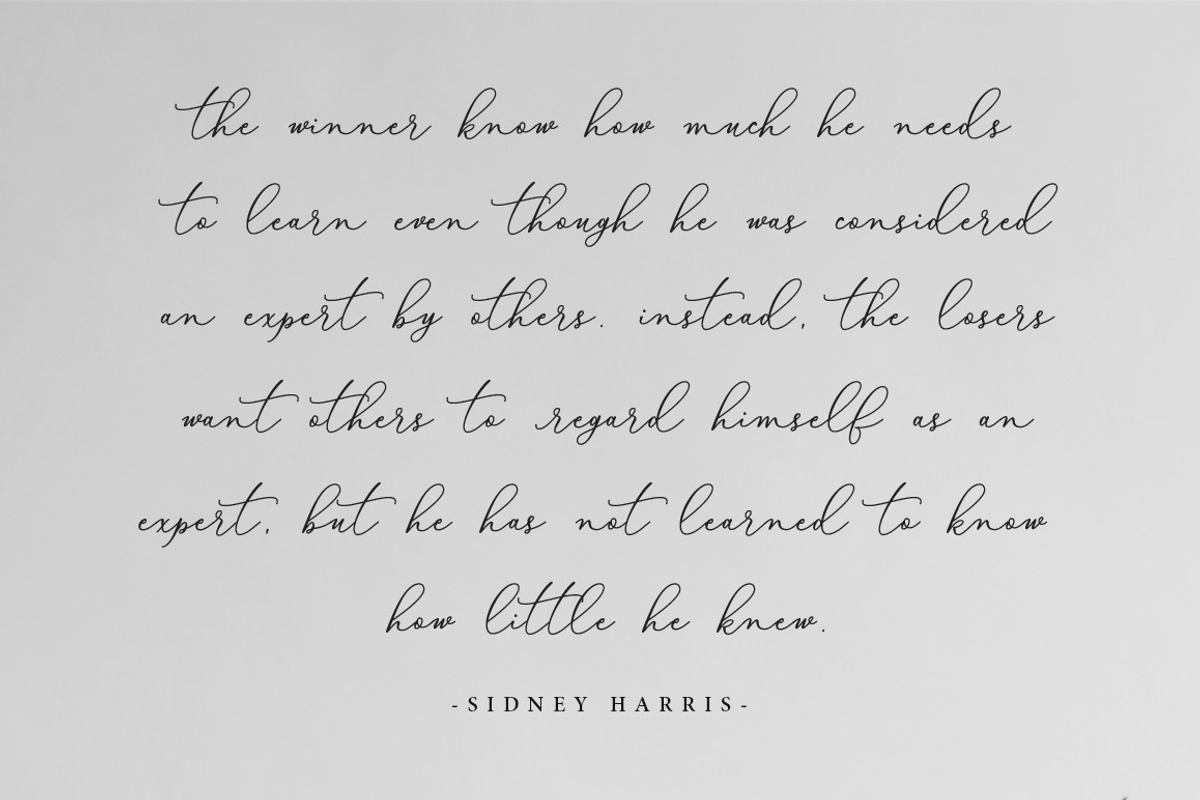 the winner know how much he needs
to learn even though he was considered
an expert by others. instead, the losers
want others to regard himself as an
expert, but he has not learned to know
how little he knew.
-SIDNEY HARRIS-